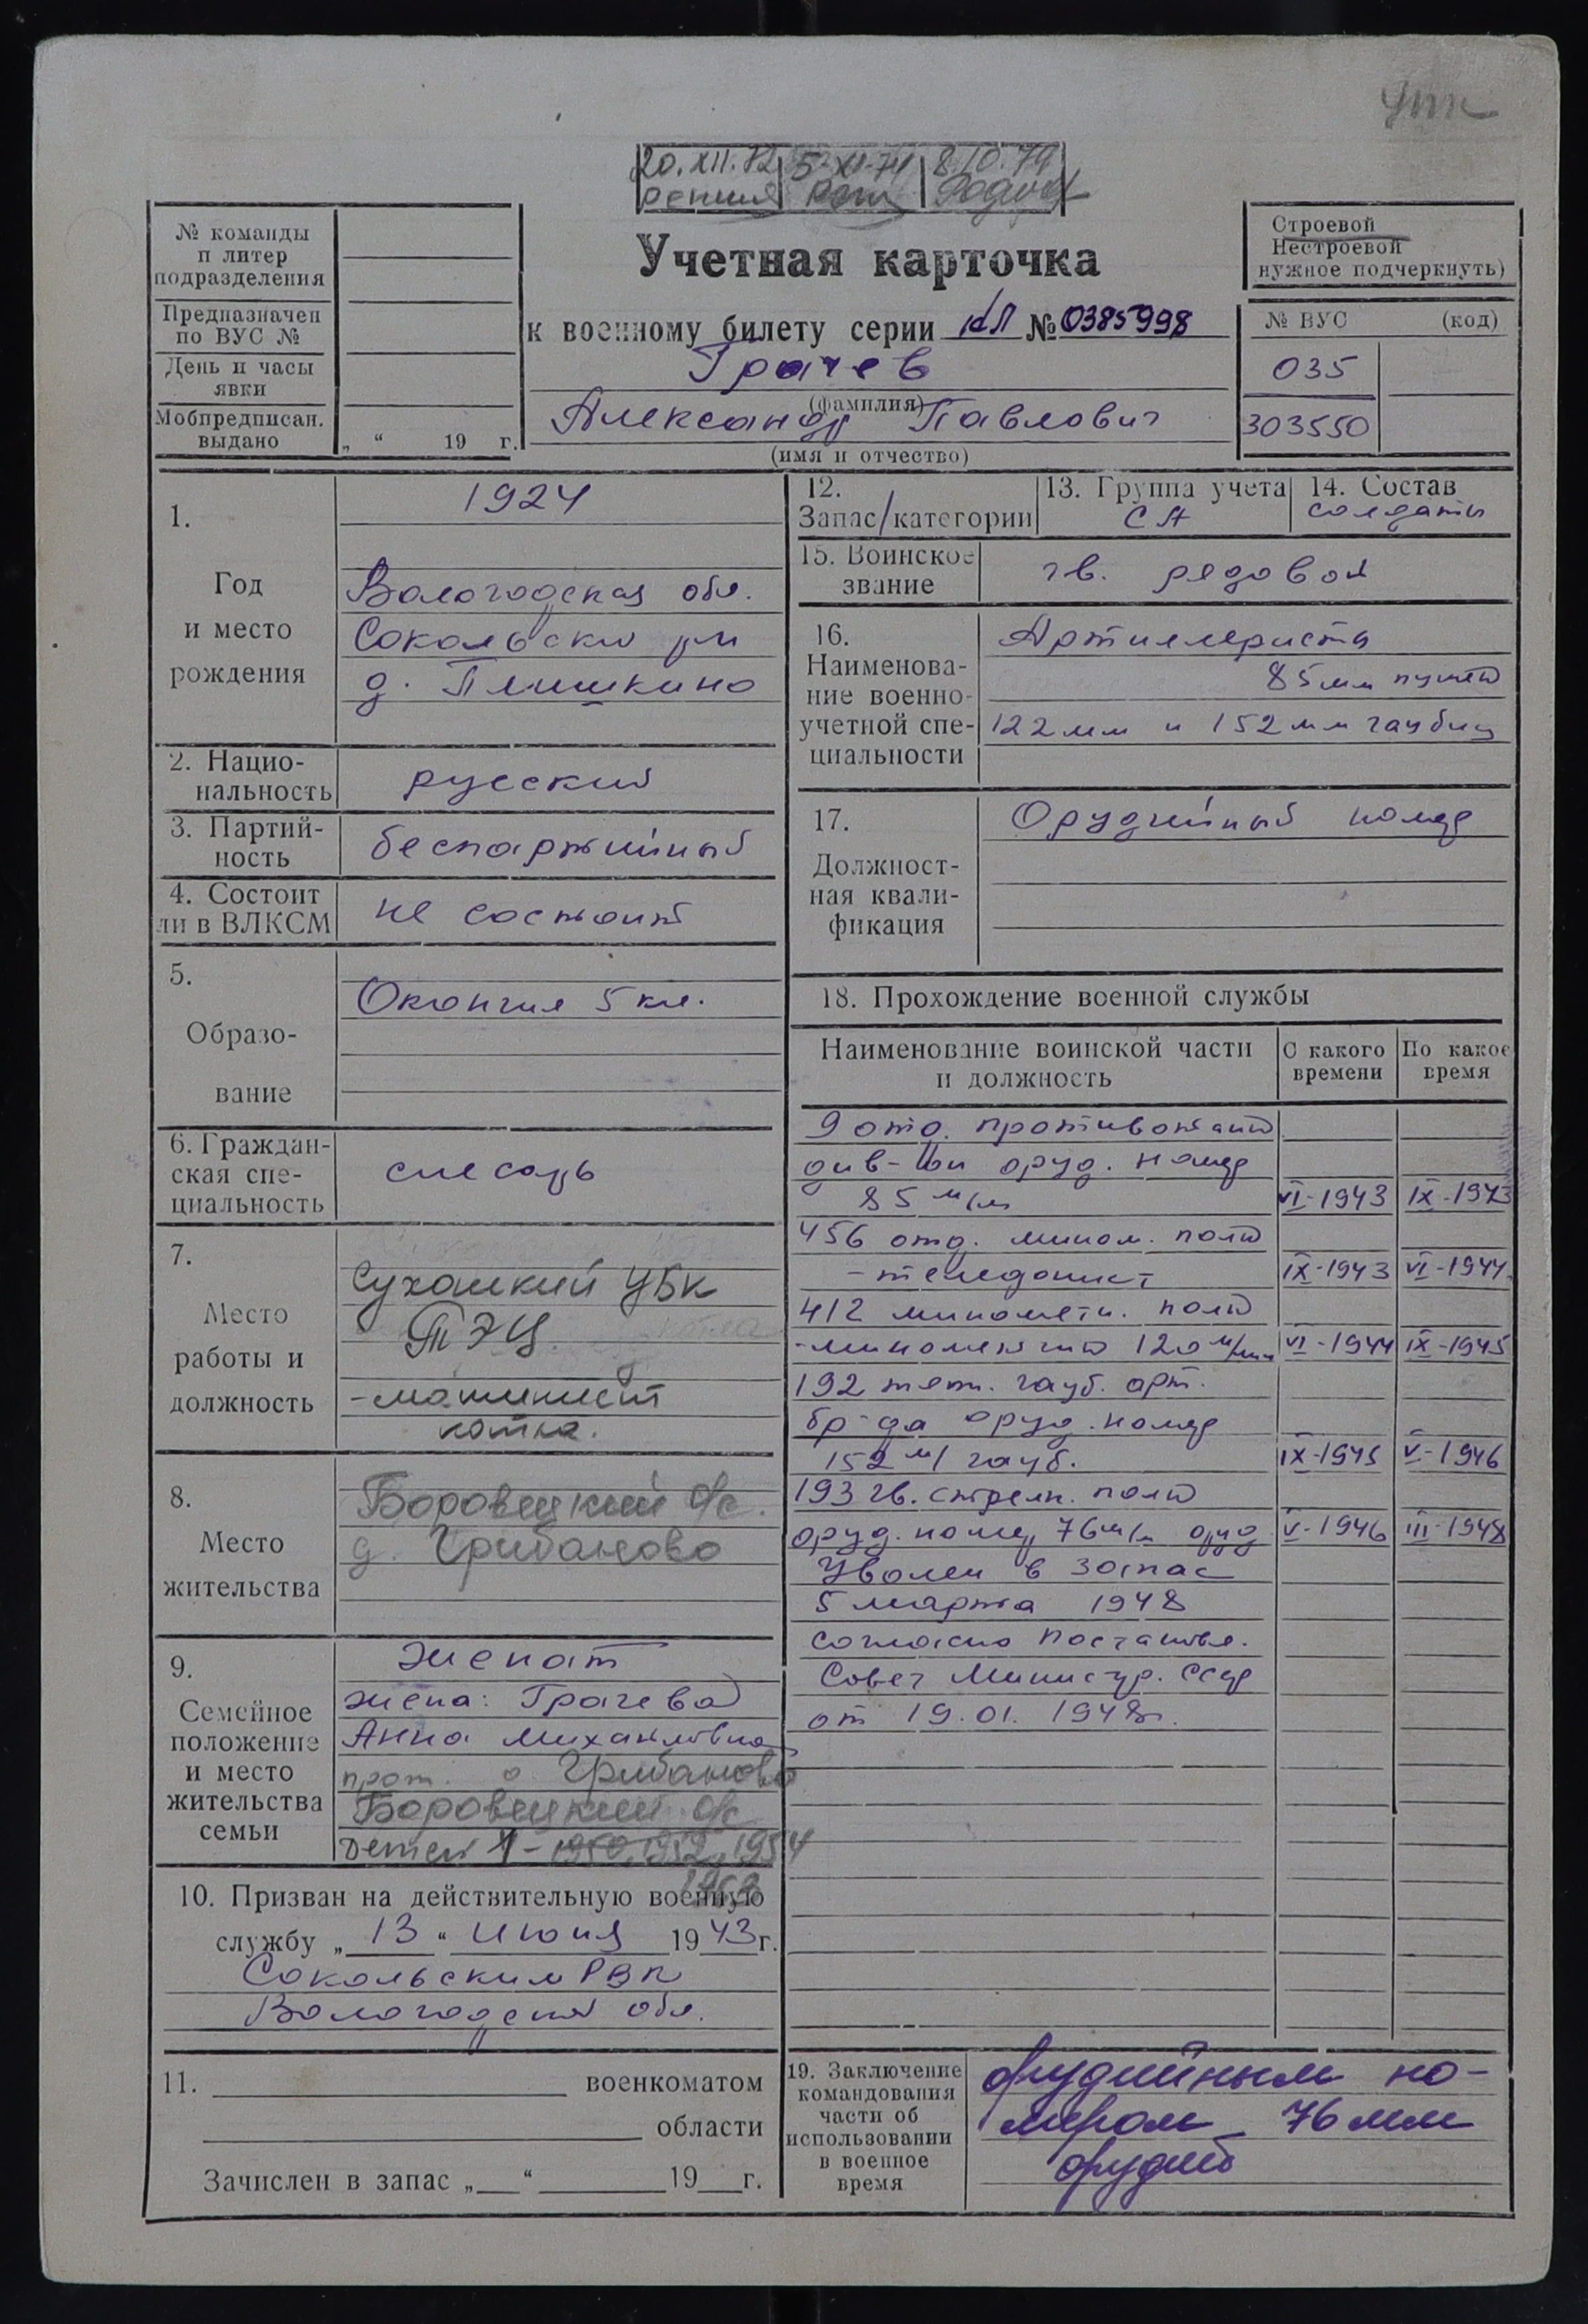 20.XII.72 5-XI-74 8.10.79
№ команды
п литер
подразделения
Предназначен
по ВУС №
День и часы
явки
Мобпредписан.
выдано „ “ 19 г.
Учетная карточка
к военному билету серии № 0385998
Грачев
(фамилия)
Александр Павлович
(имя и отчество)
Строевой
Нестроевой
нужное подчеркнуть)
№ ВУС (код)
035
303550
1.
Год
и место
рождения
1924
Вологодская обл.
Сокольский рн
д. Плишкино
2. Нацио-
нальность
русский
3. Партий-
ность
беспартийный
4. Состоит
ли в ВЛКСМ
не состоит
5.
Образо-
вание
Окончил 5 кл.
6. Граждан-
ская спе-
циальность
слесарь
7.
Место
работы и
должность
Сухонский ЦБК
ТЭЦ
-машинист
котла.
8.
Место
жительства
Боровецкий с/с.
д. Грибаново
9.
Семейное
положение
и место
жительства
семьи
Женат
жена: Грачева
Анна Михайловна
прож. Грибаново
Боровецкий с/с
Детей 1 - 1950, 1952, 1954
10. Призван на действительную военную
службу „ 13 “ июня 1943 г.
Сокольским РВК
Вологодской обл.
11. военкоматом
области
Зачислен в запас „ “ 19 г.
12.
Запас/категории
13. Группа учета
СА
14. Состав
солдаты
15. Воинское
звание
гв. рядовой
16.
Наименова-
ние военно-
учетной спе-
циальности
Артиллеристы
85мм пушек
122мм и 152мм гаубиц
17.
Должност-
ная квали-
фикация
Орудийный номер
18. Прохождение военной службы
Наименование воинской части
и должность
С какого
времени
По какое
время
9 отд. противотанк
див-он оруд. номер
85 м/м VI-1943 IX-1943
456 отд. мином. полк
-телефонист IX-1943 VI-1944
412 минометн. полк
-минометчик 120 м/мм VI-1944 IX-1945
192 тяж. гауб. арт.
бр-да оруд. номер
152 м/ гауб. IX-1945 V-1946
193 гв. стрелк. полк
оруд. номер 76м/м оруд. V-1946 III-1948
Уволен в запас
5 марта 1948
согласно постановл.
Совет Министр. СССР
от 19.01.1948г.
19. Заключение
командования
части об
использовании
в военное
время
Орудийным но-
мером 76 мм
орудий